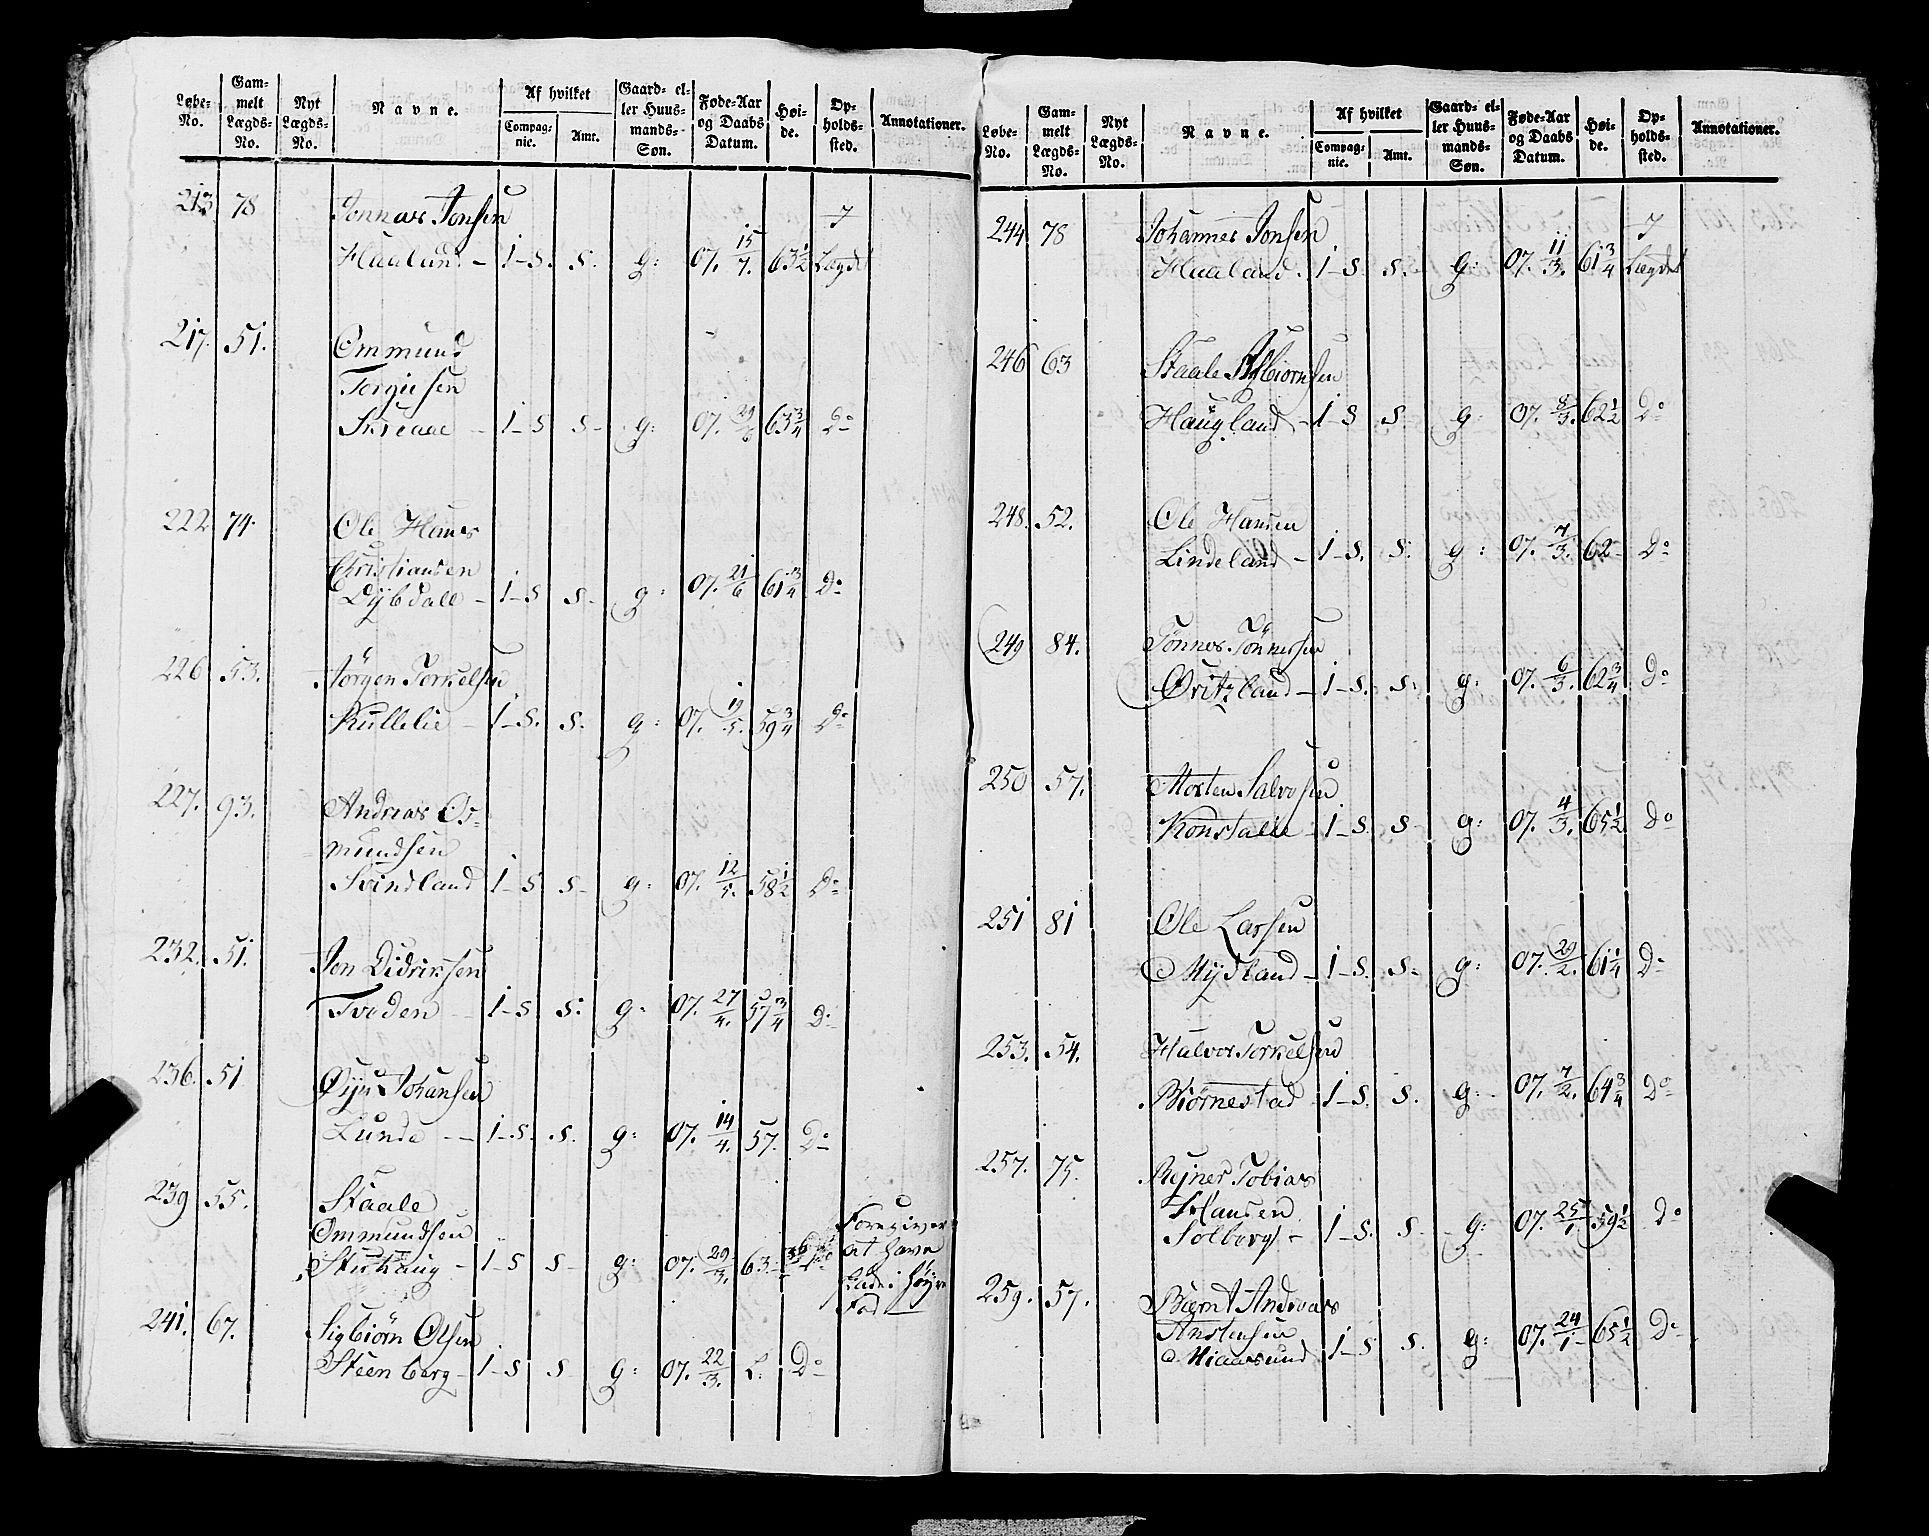 Løbe-No. Gammelt Lægds-No. Nyt Lægds-No. Navne. Af hvilket Compagnie. Amt. Gaard- eller Huusmands-Søn. Føde-Aar og Daabs Datum. Høide. Opholdssted. Annotationer.
213 78 Tønnes Jonsen
Hualand - 1-S. S. g: 07. 15/7. 63 1/2 I Lægdet
217. 51. Ommund
Torgiesen
Skreaae - 1-S S- g: 07. 29/6 63 3/4 Do
222 74. Ole Hanes
Christiansen
Dybdale - 1-S S- g: 07. 21/6 61 3/4 Do
226 53. Jørgen Torkelsen
Kullelie - 1-S. S. g: 07. 19/5. 59 3/4 Do
227. 93. Andreas Os-
mundsen
Svindland 1-S S- g: 07. 12/5. 58 1/2 Do
232. 51. Jon Didriksen
Tvoden - 1-S S. g: 07. 27/4. 57 3/4 Do
236. 51 Øÿn Johansen
Lunde - - 1-S. S. g: 07. 14/4. 57. Do
239 55. Staale
Ommundsen
Stuhaug - 1-S S- g: 07. 29/3. 63- Do Foregiver at have Skade i høyre Fod
241. 67. Sigbiørn Olsen
Steenberg - 1-S S- g: 07. 22/3. L: Do
Løbe-No. Gammelt Lægds-No. Nyt Lægds-No. Navne. Af hvilket Compagnie. Amt. Gaard- eller Huusmands-Søn. Føde-Aar og Daabs Datum. Høide. Opholdssted. Annotationer.
244 78 Johannes Jonsen
Hualand. 1-S. S. g: 07. 11/3. 61 3/4 I Lægdet
246 63 Staale Asbiørnsen
Haugland - 1-S S. g 07. 8/3. 62 1/2 Do
248. 52. Ole Hansen
Lindeland - 1-S. S. g: 07. 7/3. 62- Do
249 84. Tønnes Tønnessen
Øvitzland - 1-S. S. g: 07. 6/3. 62 3/4 Do
250 57. Morten Salvesen
Konstalie - 1-S. S- g: 07. 4/3. 65 1/2 Do
251 81 Ole Larsen
Mydland - 1-S. S- g: 07. 29/2. 61 1/4 Do
253. 54. Halvor Torkelsen
Biørnestad - 1-S. S. g: 07. 7/2. 64 3/4 Do
257. 75. Rejner Tobias
Hansen
Solberg - 1-S. S. g: 07. 25/1. 59 1/2 Do
259. 57. Bernt Andreas
Anstensen
Miaasund 1-S S. g: 07. 24/1- 65 1/2 Do